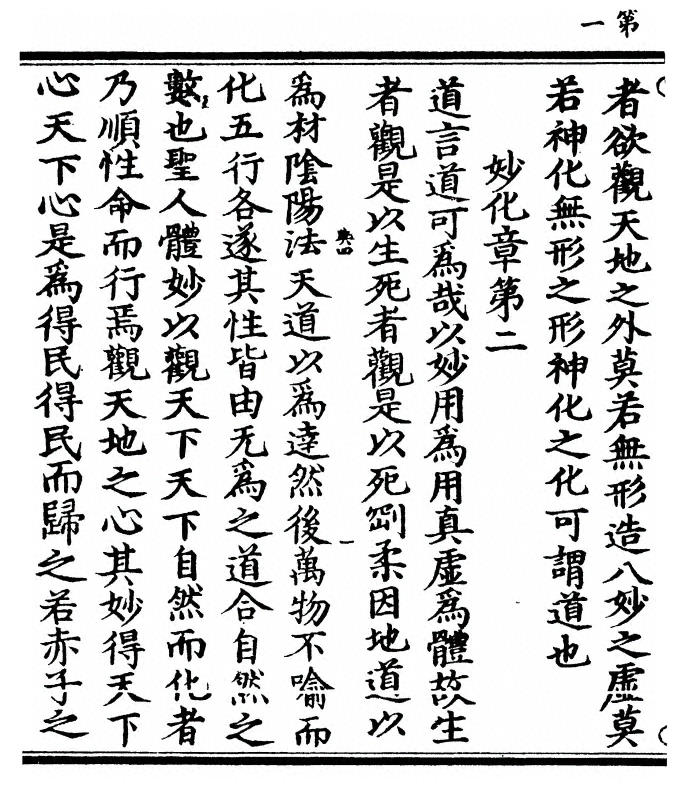 第一
者欲觀天地之外莫若無形造八妙之虛莫
若神化無形之形神化之化可謂道也
妙化章第二
道言道可爲哉以妙用爲用真虛爲體故生
者觀是以生死者觀是以死剛柔因地道以
爲材陰陽法天道以爲逹然後萬物不喻而
化五行各遂其性皆由无爲之道合自然之
數也聖人體妙以觀天下天下自然而化者
乃順性命而行焉觀天地之心其妙得天下
心天下心是爲得民得民而歸之若赤子之